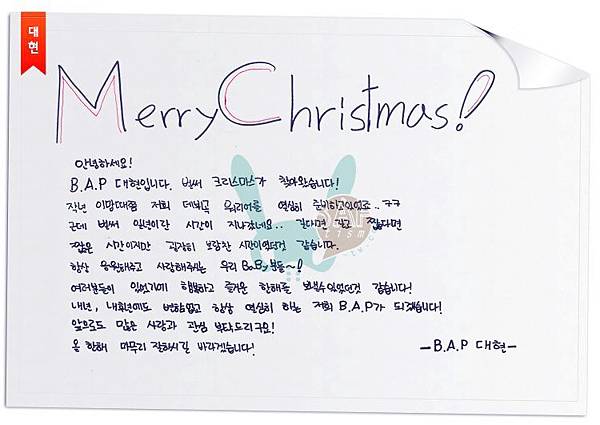 대현
Merry Christmas!
안녕하세요!
B.A.P 대현입니다. 벌써 크리스마스가 찾아왔습니다!
작년 이맘때쯤 저희 데뷔곡 워리어를 열심히 준비하고있었죠..ㅋㅋ
근데 벌써 일년이란 시간이 지나갔네요.. 길다면 길고 짧다면
짧은 시간이지만 굉장히 보람찬 시간이었던것 같습니다.
항상 응원해주고 사랑해주시는 우리 BaBy분들~!
여러분들이 있었기에 행복하고 즐거운 한해를 보낼수있었던것 같습니다!
내년, 내후년에도 변함없고 항상 열심히 하는 저희 B.A.P가 되겠습니다!
앞으로도 많은 사랑과 관심 부탁드리구요!
올 한해 마무리 잘하시길 바라겠습니다!
-B.A.P 대현-